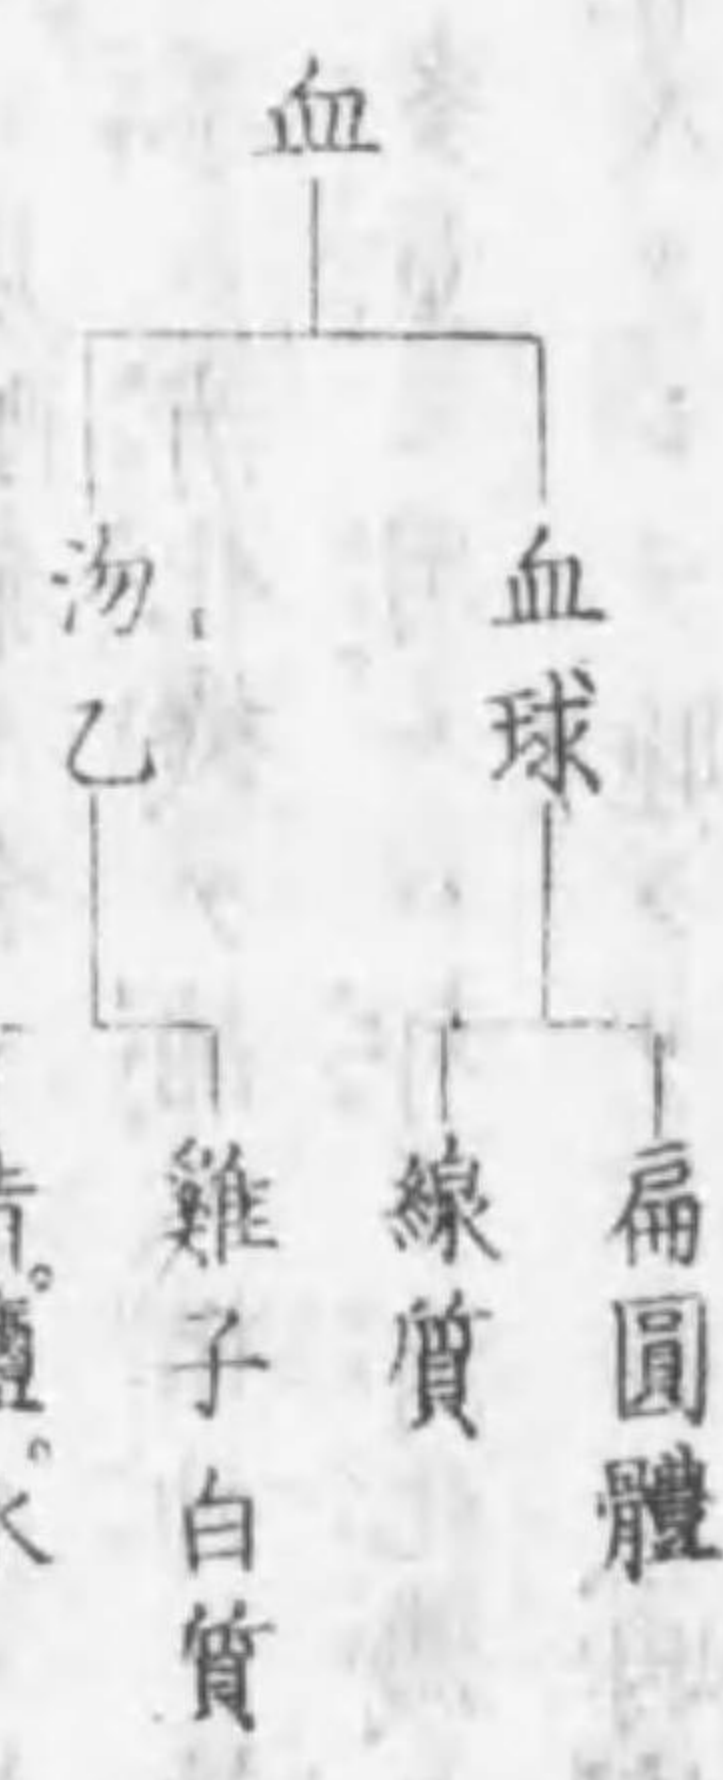 血
血球
沕乙
扁圓體
線質
雞子白質